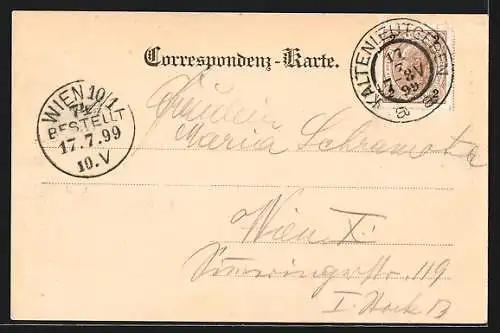 Correspondenz-Karte.
KALTENLEUTGEBEN
17
7
99
WIEN 10/1
BESTELLT
17.7.99
10.V
Fräulein
Maria Schramota
Wien X.
Simmeringerstr. 119
I. Stock 13